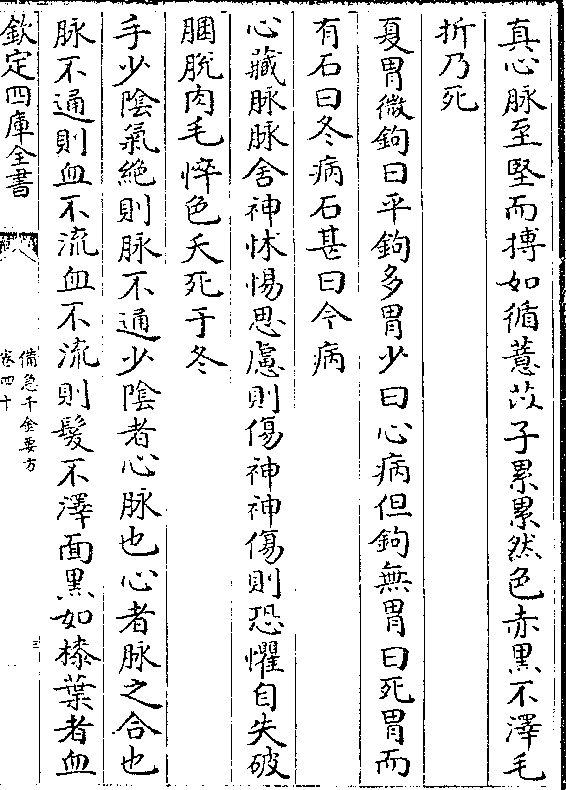 真心脉至堅而搏如循薏苡子累累然色赤黒不澤毛
折乃死
夏胃微鉤曰平鉤多胃少曰心病但鉤無胃曰死胃而
有石曰冬病石甚曰今病
心藏脉脉舍神怵惕思慮則傷神神傷則恐懼自失破
䐃脫肉毛悴色夭死于冬
手少陰氣絶則脉不通少陰者心脉也心者脉之合也
脉不通則血不流血不流則髮不澤面黒如㯃葉者血
欽定四庫全書
備急千金要方
卷四十
三